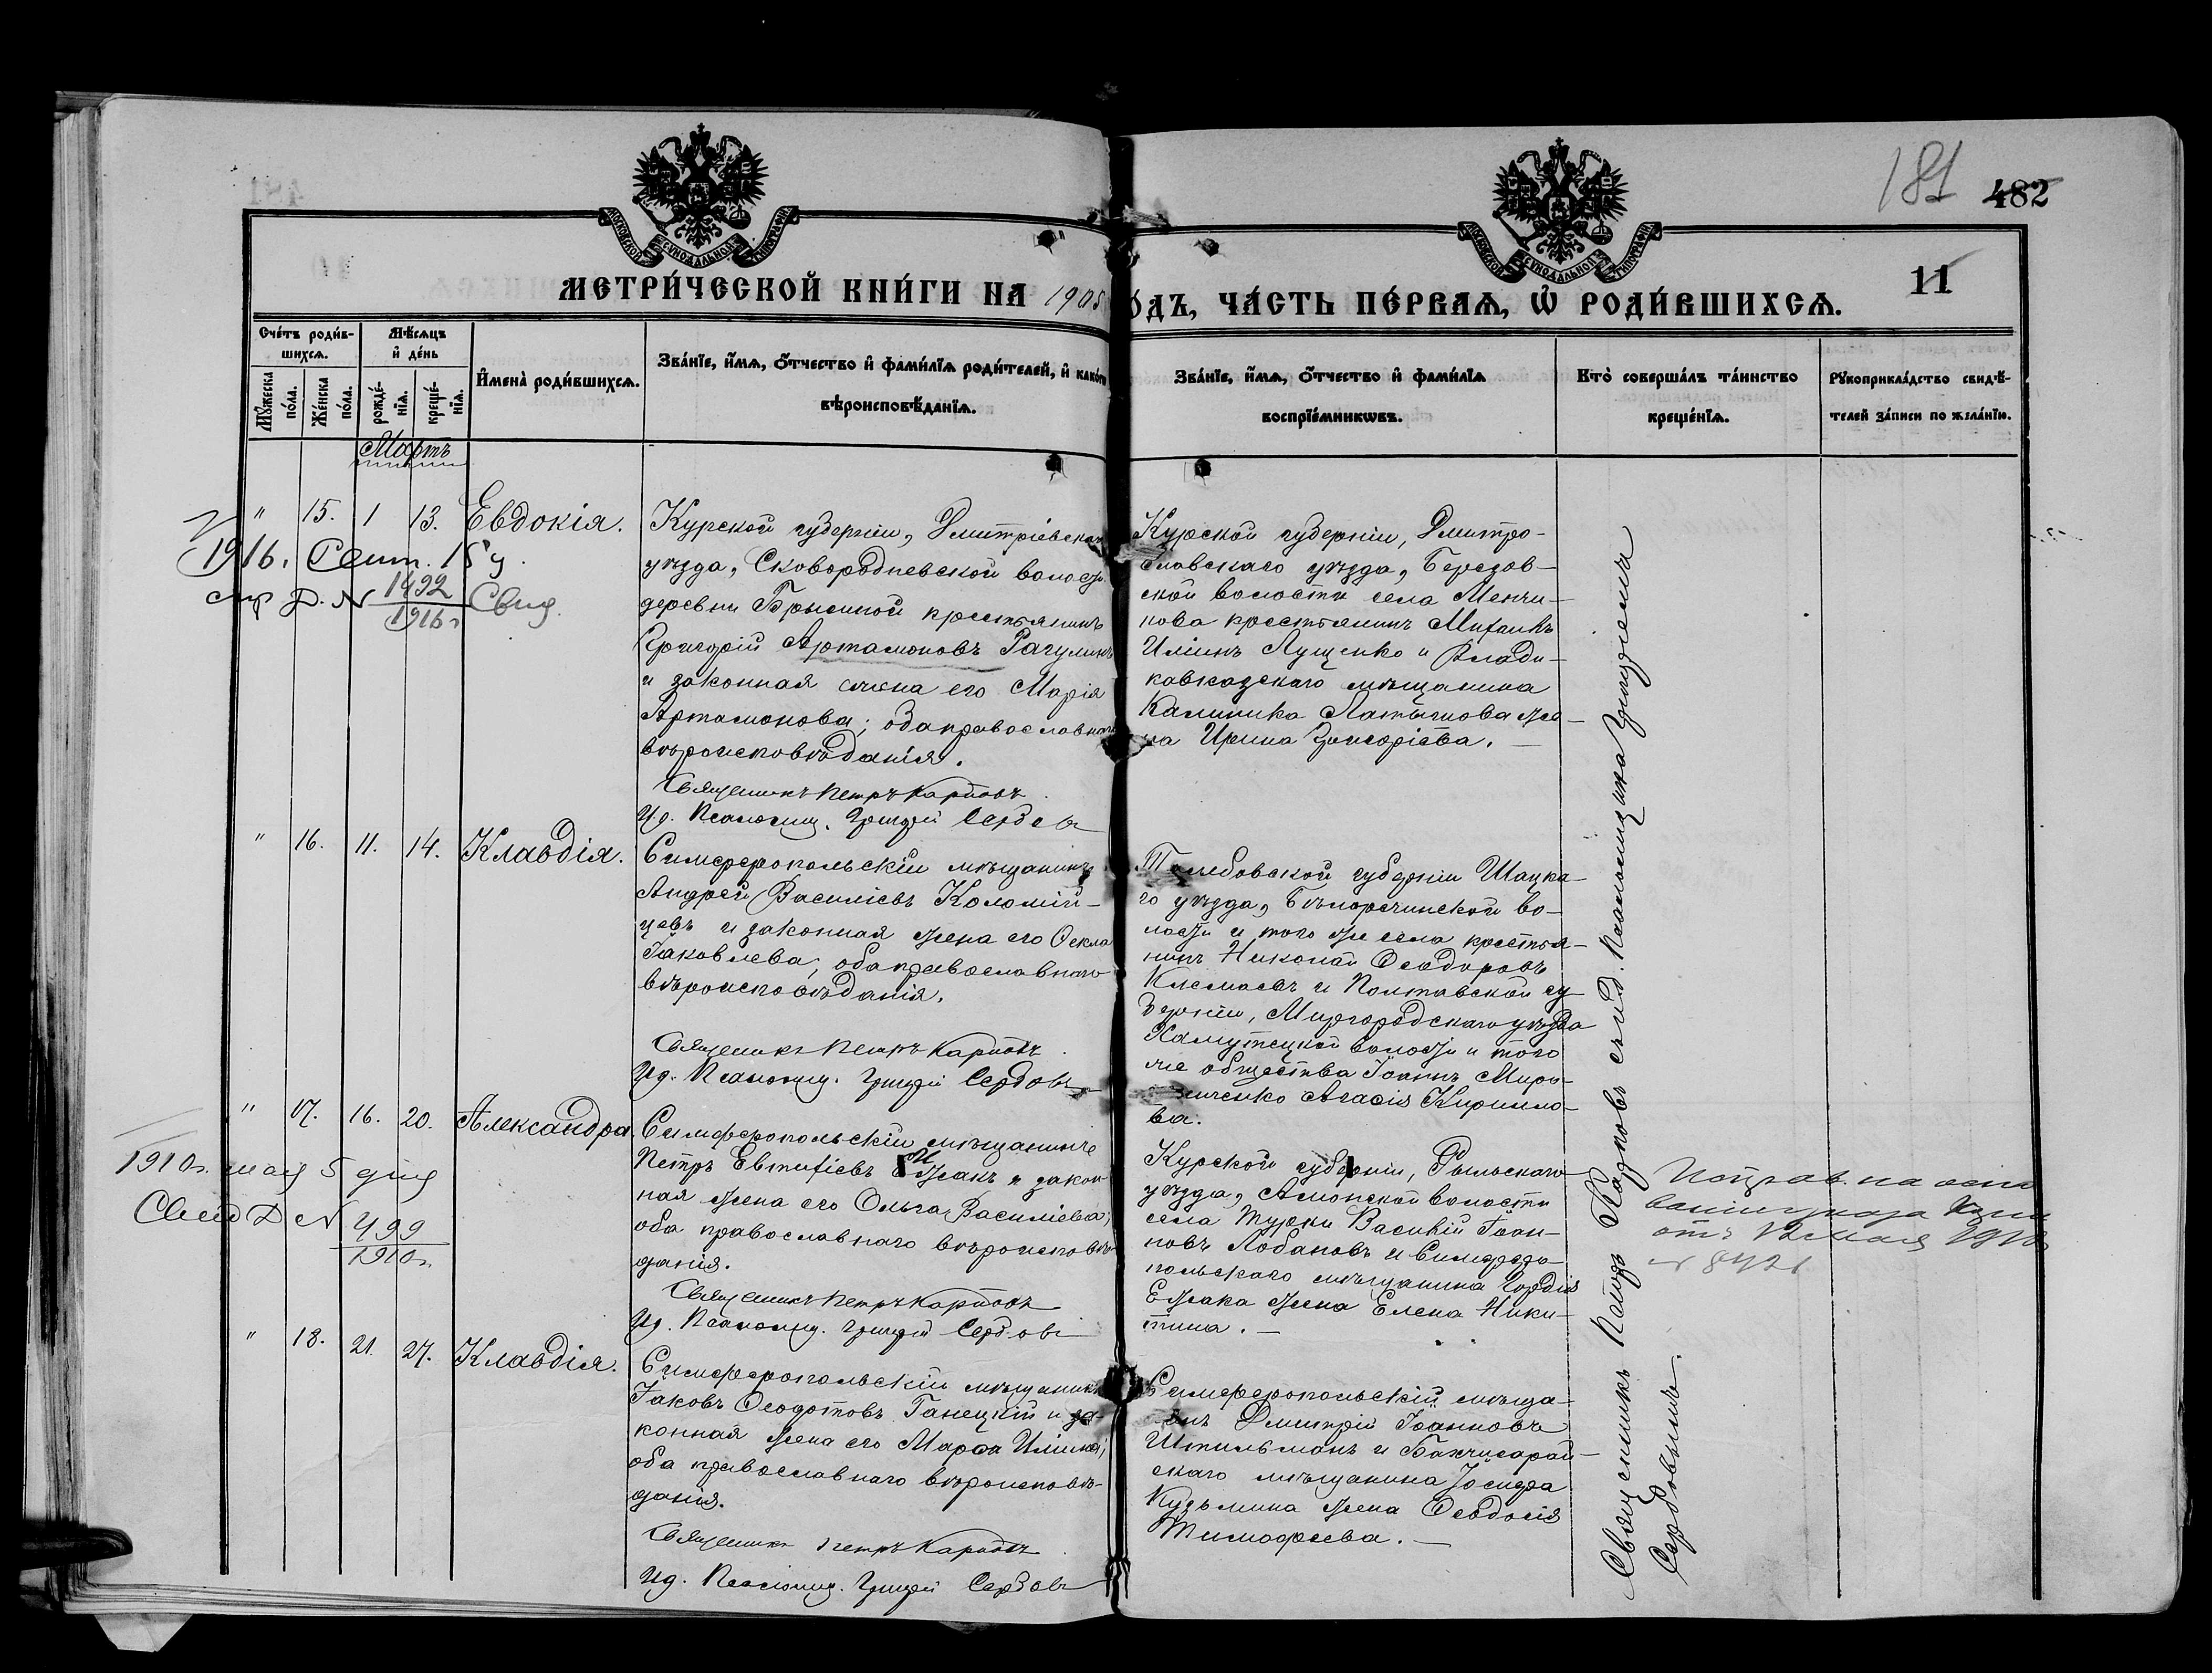 181 482
11
МОСКОВСКОЙ СУНОДАЛЬНОЙ ТИПОГРАФІИ
МОСКОВСКОЙ СУНОДАЛЬНОЙ ТИПОГРАФІИ
МЕТРИ́ЧЕСКОЙ КНИ́ГИ НА 1908
ОДЪ, ЧА́СТЬ ПЕ́РВАѦ, Ѡ҆ РОДИ́ВШИХСѦ.
Сче́тъ роди́в-
шихсѧ.
Мꙋ́жеска
по́ла.
Же́нска
по́ла.
Мѣ́сѧцъ
и҆ де́нь
рожде́-
нїѧ.
креще́-
нїѧ.
И҆мена̀ роди́вшихсѧ.
Зва́нїе, и҆́мѧ, ѻ҆́тчество и҆ фами́лїѧ роди́телей, и҆ како́гѡ
вѣроисповѣ́данїѧ.
Зва́нїе, и҆́мѧ, ѻ҆́тчество и҆ фами́лїѧ
воспрїе́мникѡвъ.
Кто̀ соверша́лъ та́инство
креще́нїѧ.
Рꙋкоприкла́дство свидѣ́-
телей за́писи по жела́нїю.
Мартъ
" 15. 1 13. Евдокія.
1916. Сент. 15 у.
№ 1492
1916 г. Свид.
Курской губерніи, Дмитріевскаго
уѣзда, Сковородневской волости
деревни Брысиной крестьянинъ
Григорій Артамоновъ Рагулинъ
и законная жена его Марія
Артамонова; оба православнаго
вѣроисповѣданія.
Священникъ Петръ Карповъ
И.д. Псаломщ. Григорій Сердовъ
Курской губерніи, Дмитро-
славскаго уѣзда, Березов-
ской волости села Менчи-
кова крестьянинъ Михаилъ
Иліинъ Лущенко и Влади-
кавказскаго мѣщанина
Калиника Латышова же-
на Ирина Григоріева.
" 16. 11. 14. Клавдія.
Симферопольскій мѣщанинъ
Андрей Василіевъ Коломій-
цевъ и законная жена его Ѳекла
Іаковлева; оба православнаго
вѣроисповѣданія.
Священникъ Петръ Карповъ
И.д. Псаломщ. Григорій Сердовъ
Тамбовской губерніи Шацка-
го уѣзда, Бѣлорѣчинской во-
лости и того же села крестья-
нинъ Николай Ѳеодоровъ
и Полтавской гу-
берніи, Миргородскаго уѣзда
Хомутецкой волости и того
же общества Іоаннъ Миро-
Агасія Кирилло-
ва.
" 17. 16. 20. Александра.
1910 г. мая 5 дня
Свид № 499
1910 г.
Симферопольскій мѣщанинъ
Петръ Евтихіевъ Ежакъ и закон-
ная жена его Ольга Василіева;
оба православнаго вѣроисповѣ-
данія.
Священникъ Петръ Карповъ
И.д. Псаломщ. Григорій Сердовъ
Курской губерніи, Рыльскаго
уѣзда, Амонской волости
села Турки Василій Іоан-
новъ Лобановъ и Симферо-
польскаго мѣщанина Гордія
Ежака жена Елена Ники-
тина.
Исправ. на осно
ваніи указа
отъ 12 мая 1910
№ 8421
" 18. 21. 27. Клавдія.
Симферопольскій мѣщанинъ
Іаковъ Ѳеодотовъ Ганецкій и за-
конная жена его Марѳа Иліина;
оба православнаго вѣроисповѣ-
данія.
Священникъ Петръ Карповъ
И.д. Псаломщ. Григорій Сердовъ
Симферопольскій мѣща-
нинъ Дмитрій Іоанновъ
Штильманъ и Бахчисарай-
скаго мѣщанина Іосифа
Кузьмина жена Ѳеодосія
Тимофеева.
Священникъ Петръ Карповъ съ и.д. псаломщика Григоріемъ
Сердовымъ.